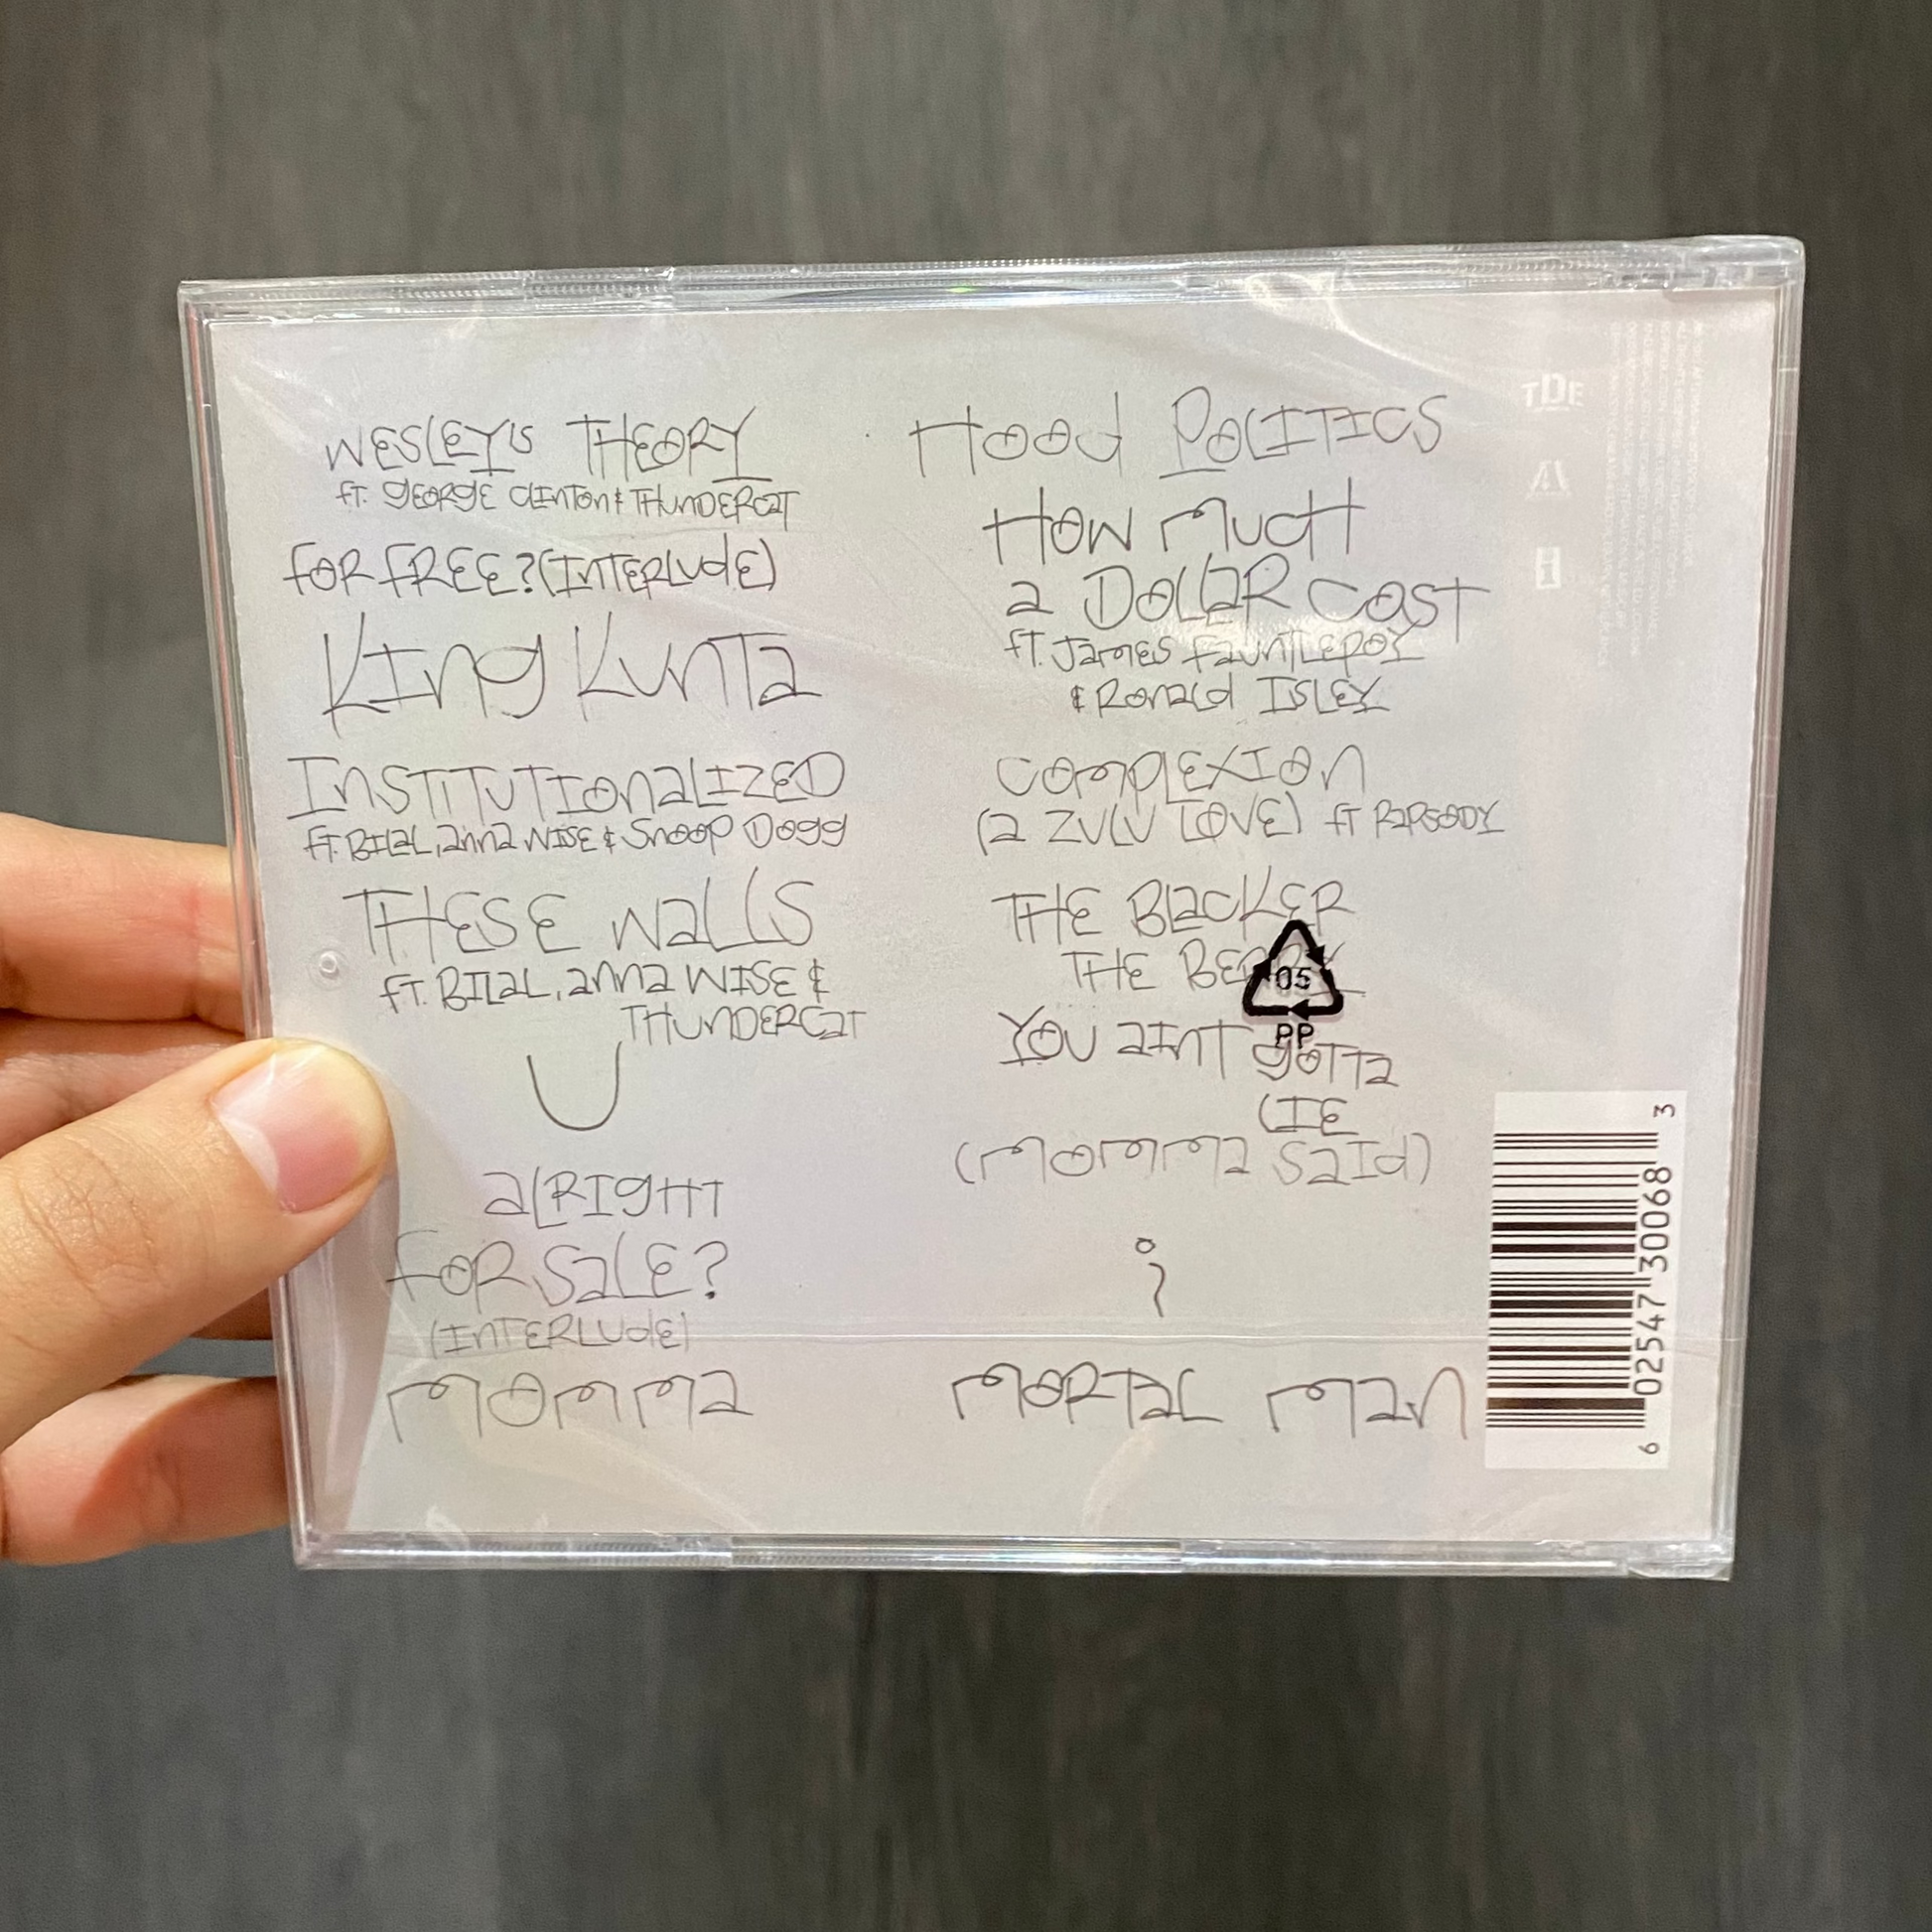 WESLEY'S THEORY
fT. gEORgE CLINTON & THUNDERCaT
fOR fREE? (INTERLUdE)
KINg KUNTa
INSTITUTIONaLIZED
fT. BILaL, aNNa WISE & SNOOP DOgg
THESE WaLLS
fT. BILaL, aNNa WISE &
THUNDERCaT
U
aLRIgHT
fOR SaLE?
(INTERLUdE)
MOMMa
HOOd POLITICS
HOW MUCH
a DOLLaR COST
fT. JaMES FaUNTLEROY
& RONaLd ISLEY
COMPLEXION
(a ZULU LOVE) fT RaPSODY
THE BLaCKER
THE BERRY
YOU aINT gOTTa
LIE
(MOMMa SaId)
i
MORTaL MaN
05
PP
TDE
6 02547 30068 3